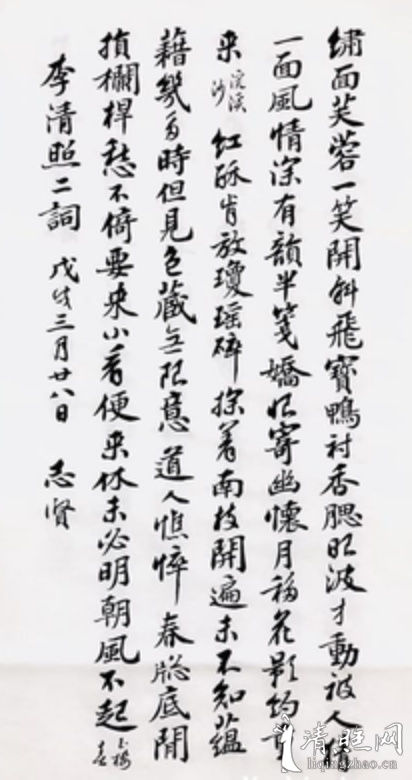 繡面芙蓉一笑開斜飛寶鴨衬香腮眼波才動被人猜
一面風情深有韻半箋嬌恨寄幽懷月移花影約重
来 浣溪沙 红酥肯放瓊瑶碎探着南枝開遍未不知蘊
藉幾多時但見包藏無限意道人憔悴春窓底閒
損欄桿愁不倚要来小着便来休未必明朝風不起 玉楼春
李清照二詞 戊戌三月廿八日 志贤